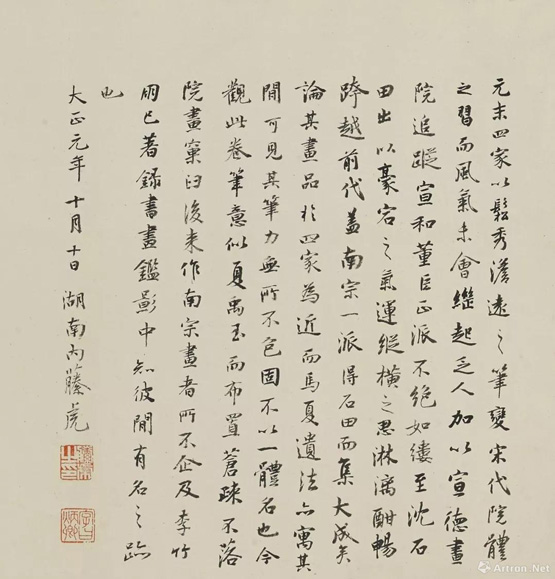 元末四家以鬆秀澹遠之筆變宋代院體
之習而風氣未會繼起乏人加以宣德畫
院追蹤宣和董巨正派不絕如縷至沈石
田出以豪宕之氣運縱橫之思淋漓酣暢
跨越前代蓋南宗一派得石田而集大成矣
論其畫品於四家為近而馬夏遺法亦寓其
間可見其筆力無所不包固不以一體名也今
觀此卷筆意似夏禹玉而布置蒼疎不落
院畫窠臼後來作南宗畫者所不企及李竹
朋已著錄書畫鑑影中知彼間有名之跡
也
大正元年十月十日 湖南內藤虎
Artron.Net